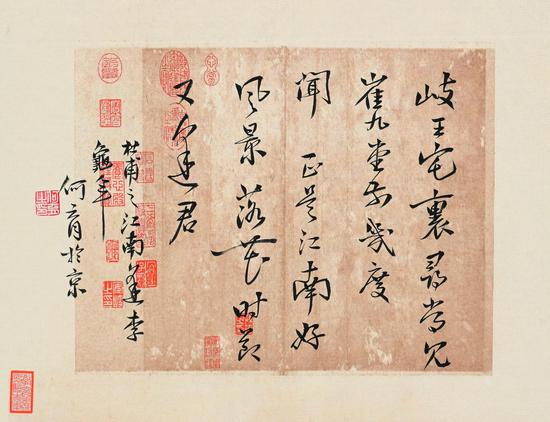 岐王宅裏尋常見
崔九堂前幾度
聞 正是江南好
風景 落花时節
又逢君
杜甫之江南逢李
龜年
何 於京